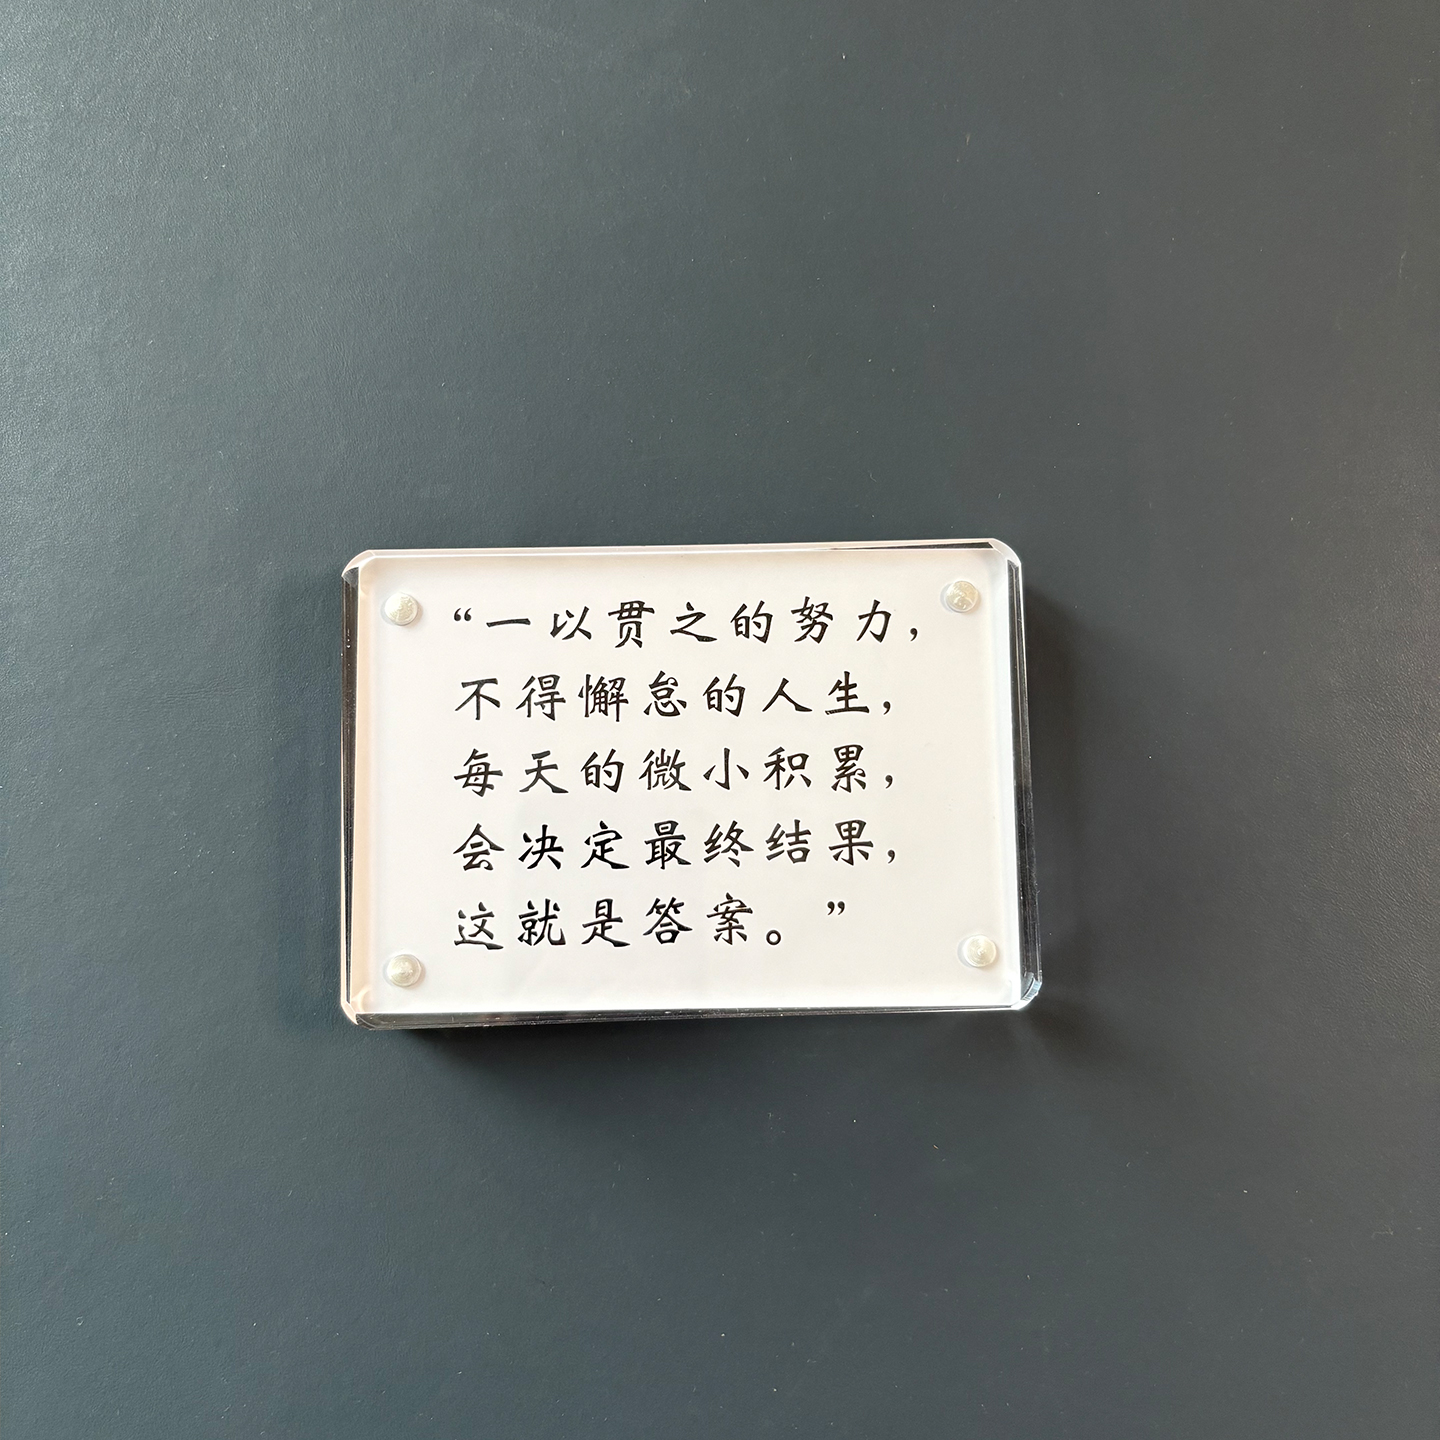 “一以贯之的努力，
不得懈怠的人生，
每天的微小积累，
会决定最终结果，
这就是答案。”